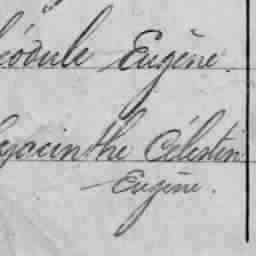 éodule Eugène.
yacinthe Célestin
Eugène.